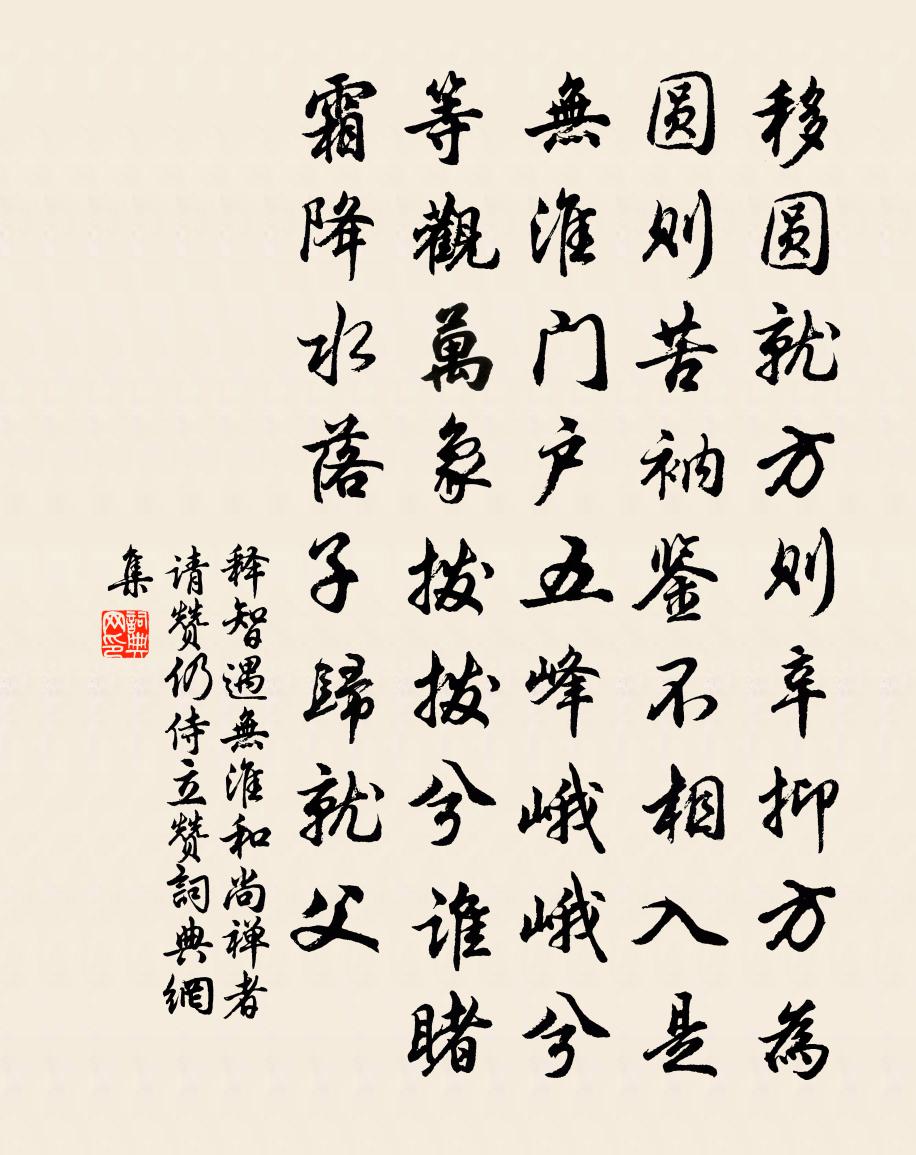 移圆就方则辛抑方為
圆则苦衲鉴不相入是
無淮门户五峰峨峨兮
等觀萬象拨拨兮谁睹
霜降水落子歸就父
释智遇無淮和尚禅者
请赞仍侍立赞詞典網
集
詞典
网印